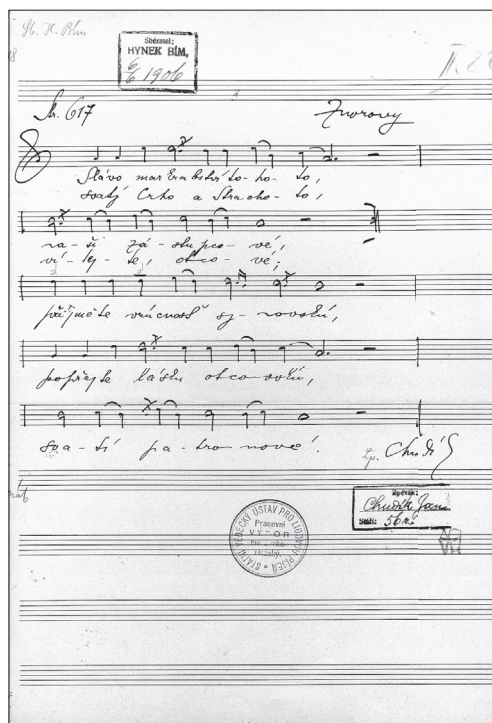 Sběratel:
HYNEK BÍM,
6/6 1906
II. 22
Sb. 617
Slávo markrabství to-ho-to,
svatý Crho a Stracho-to,
na-ši zá-stupco-vé,
ví-tej-te, otco-vé;
přijměte vroucnosť sy-novskú,
popřejte lásku otcovskú,
sva-tí pa-tronové!
zp. Chudík
Zpěvák:
Chudík Jan
Stáří: 56 r.
STÁTNÍ VĚDECKÝ ÚSTAV PRO LIDOVOU PÍSEŇ
Pracovní
VÝBOR